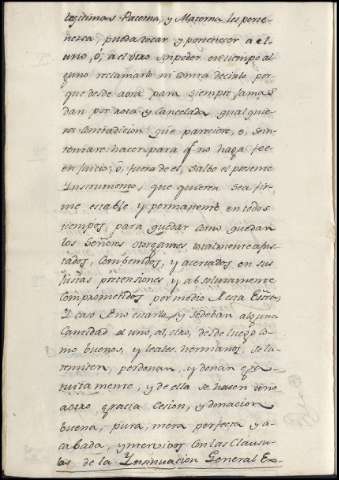 legitimas Paterna, y Materna les perte-
nesca, pueda tocar y pertenecer a el
uno, ó, a el otro sin poder en tiempo al-
guno reclamarlo ni contra decirlo por
que desde aora para siempre jamas
dan por rota y Cancelada qualquie-
ra Contradicion que pareciere, o, sin-
tentare hacer para q.e no haga fee
en Juicio, ó, fuera de el, salbo el presente
Instrumento, que quieren sea fir-
me estable y permanente en todos
tiempos, para quedar como quedan
los Señores otorgantes, totalmente ajus-
tados, combenidos, y acertados en sus
pretenciones y absolutamente
Comprometidos por medio de esta Escri.a
Y caso y se deban alguna
Cantidad al uno, al otro, desde luego co-
mo buenos, y leales hermanos, se la
remiten, perdonan, y donan gra-
tuitamente, y de ella se hacen uno
a otro gracia Cesion, y donacion
buena, pura, mera perfecta y a-
cabada, yntervivos con las Clausu-
las de la Ynsinuacion General En-